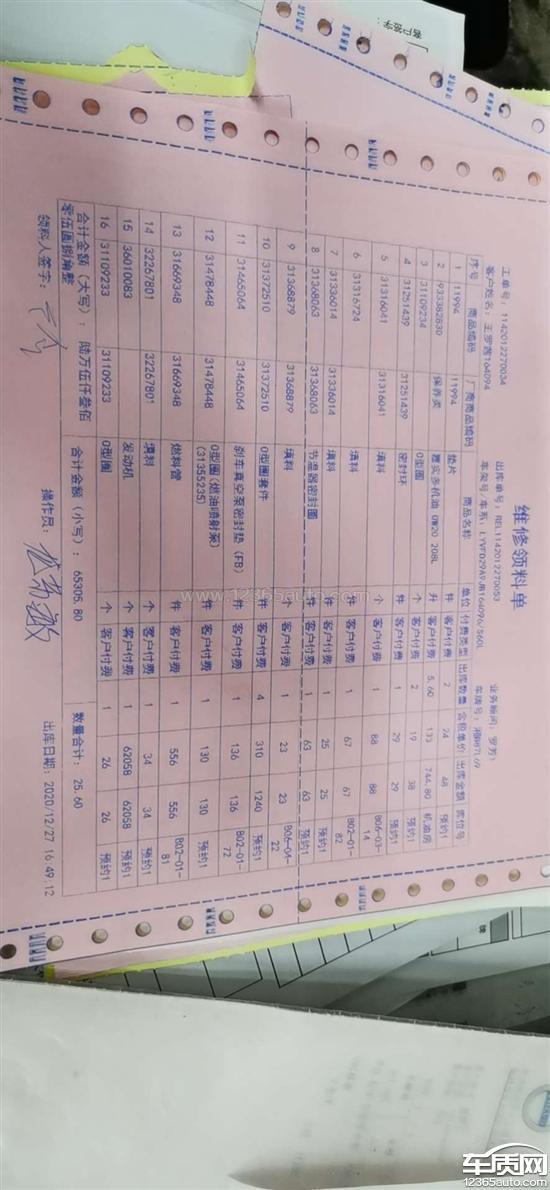 维修领料单
工单号：1142012270034 出库单号：REL1142012270053 业务顾问：罗芳
客户姓名：王罗茜164094 车架号/车系：LYVFD29A9JB164096/S60L 车牌号：
序号 商品编码 厂商商品编码 商品名称 单位 付费类型 出库数量 含税单价 出库金额 库位号
1 11994 11994 垫片 件 客户付费 2 24 48 预约1
2 i933382830 保养类 嘉实多机油 0W20 208L 升 客户付费 5.60 133 744.80 机油房
3 31109234 O型圈 个 客户付费 2 19 38 预约1
4 31251439 31251439 密封环 件 客户付费 1 29 29 预约1
5 31316041 31316041 填料 个 客户付费 1 88 88 B06-03-14
6 31316724 填料 件 客户付费 1 67 67 B02-01-82
7 31336014 31336014 填料 件 客户付费 1 25 25 预约1
8 31368063 31368063 节温器密封圈 件 客户付费 1 63 63 预约1
9 31368879 31368879 填料 个 客户付费 1 23 23 B06-04-22
10 31372510 31372510 O型圈套件 件 客户付费 4 310 1240 预约1
11 31465064 31465064 刹车真空泵密封垫（FB） 件 客户付费 1 136 136 B02-01-72
12 31478448 31478448 O型圈(燃油喷射泵)(31355235) 件 客户付费 1 130 130 预约1
13 31669348 31669348 燃料管 件 客户付费 1 556 556 B02-01-81
14 32267801 32267801 填料 个 客户付费 1 34 34 预约1
15 36010083 发动机 件 客户付费 1 62058 62058 预约1
16 31109233 31109233 O型圈 个 客户付费 1 26 26 预约1
合计金额（大写）：陆万伍仟叁佰零伍圆捌角整 合计金额（小写）：65305.80 数量合计：25.60
领料人签字： 操作员： 出库日期：2020/12/27 16:49:12
www.12365auto.com
车质网
12365auto.com